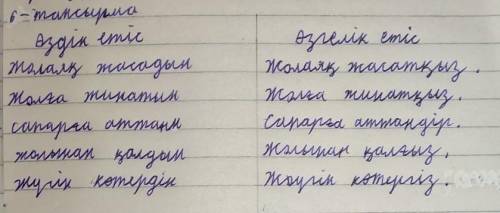 6-тапсырма
Өздік етіс Өзгелік етіс
Жолаяқ жасадын Жолаяқ жасатқыз.
Жолға жинатын Жолға жинатқыз.
сапарға аттанн Сапарға аттандір.
жолынан қалдын Жолынан қалғыз.
Жүгін көтердін Жүгін көтергіз.